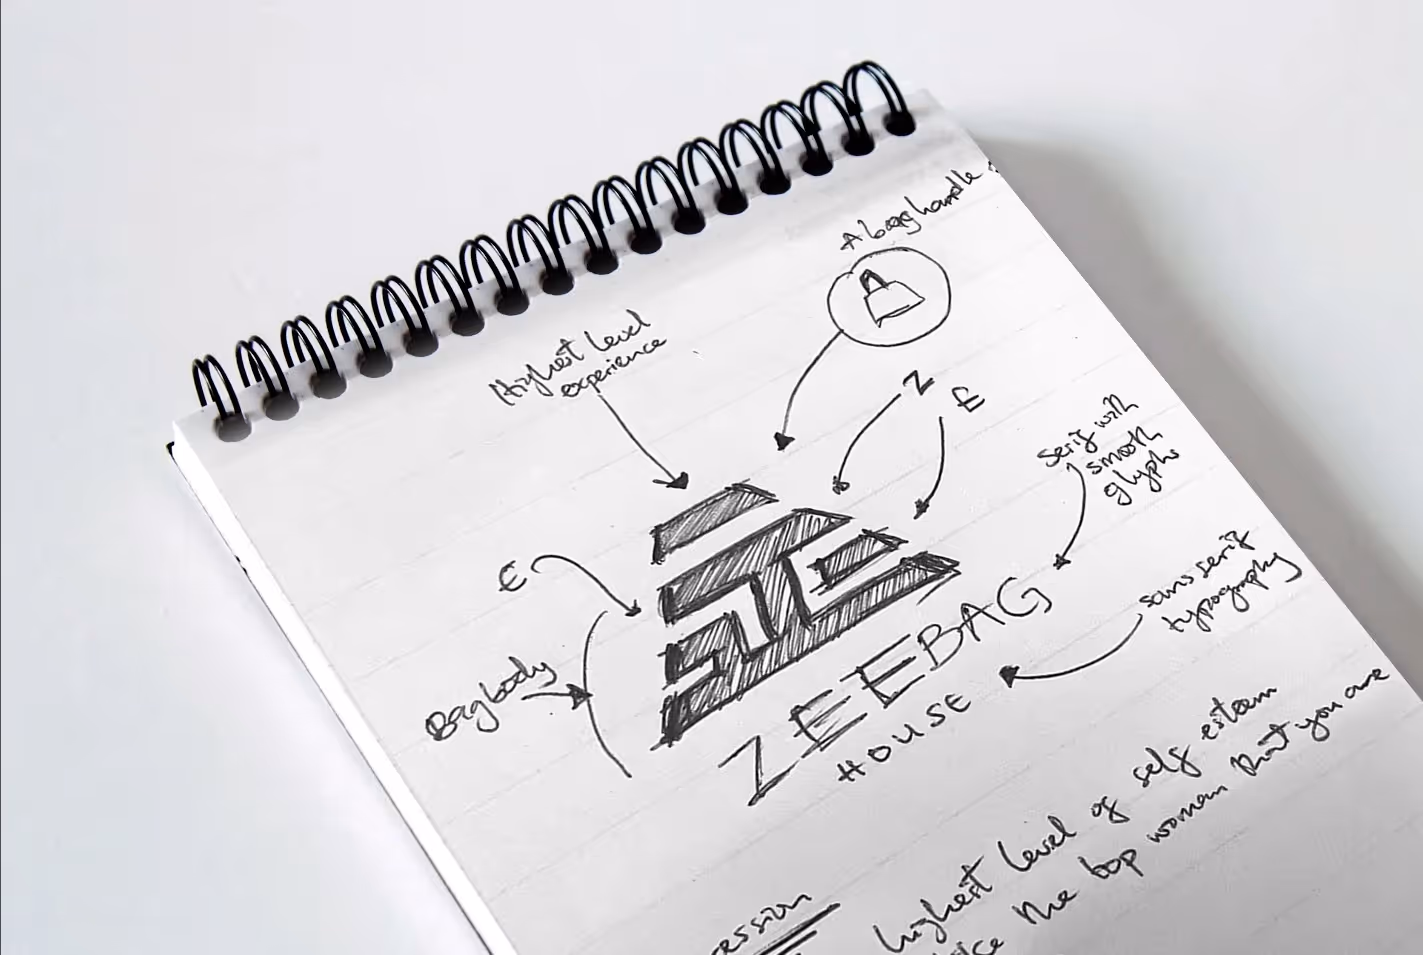 A bag handle
Highest Level
experience
Z
E
serif with
smooth
glyphs
E
sans serif
typography
Bag body
ZEEBAG
HOUSE
highest level of self esteem
the bop woman that you are